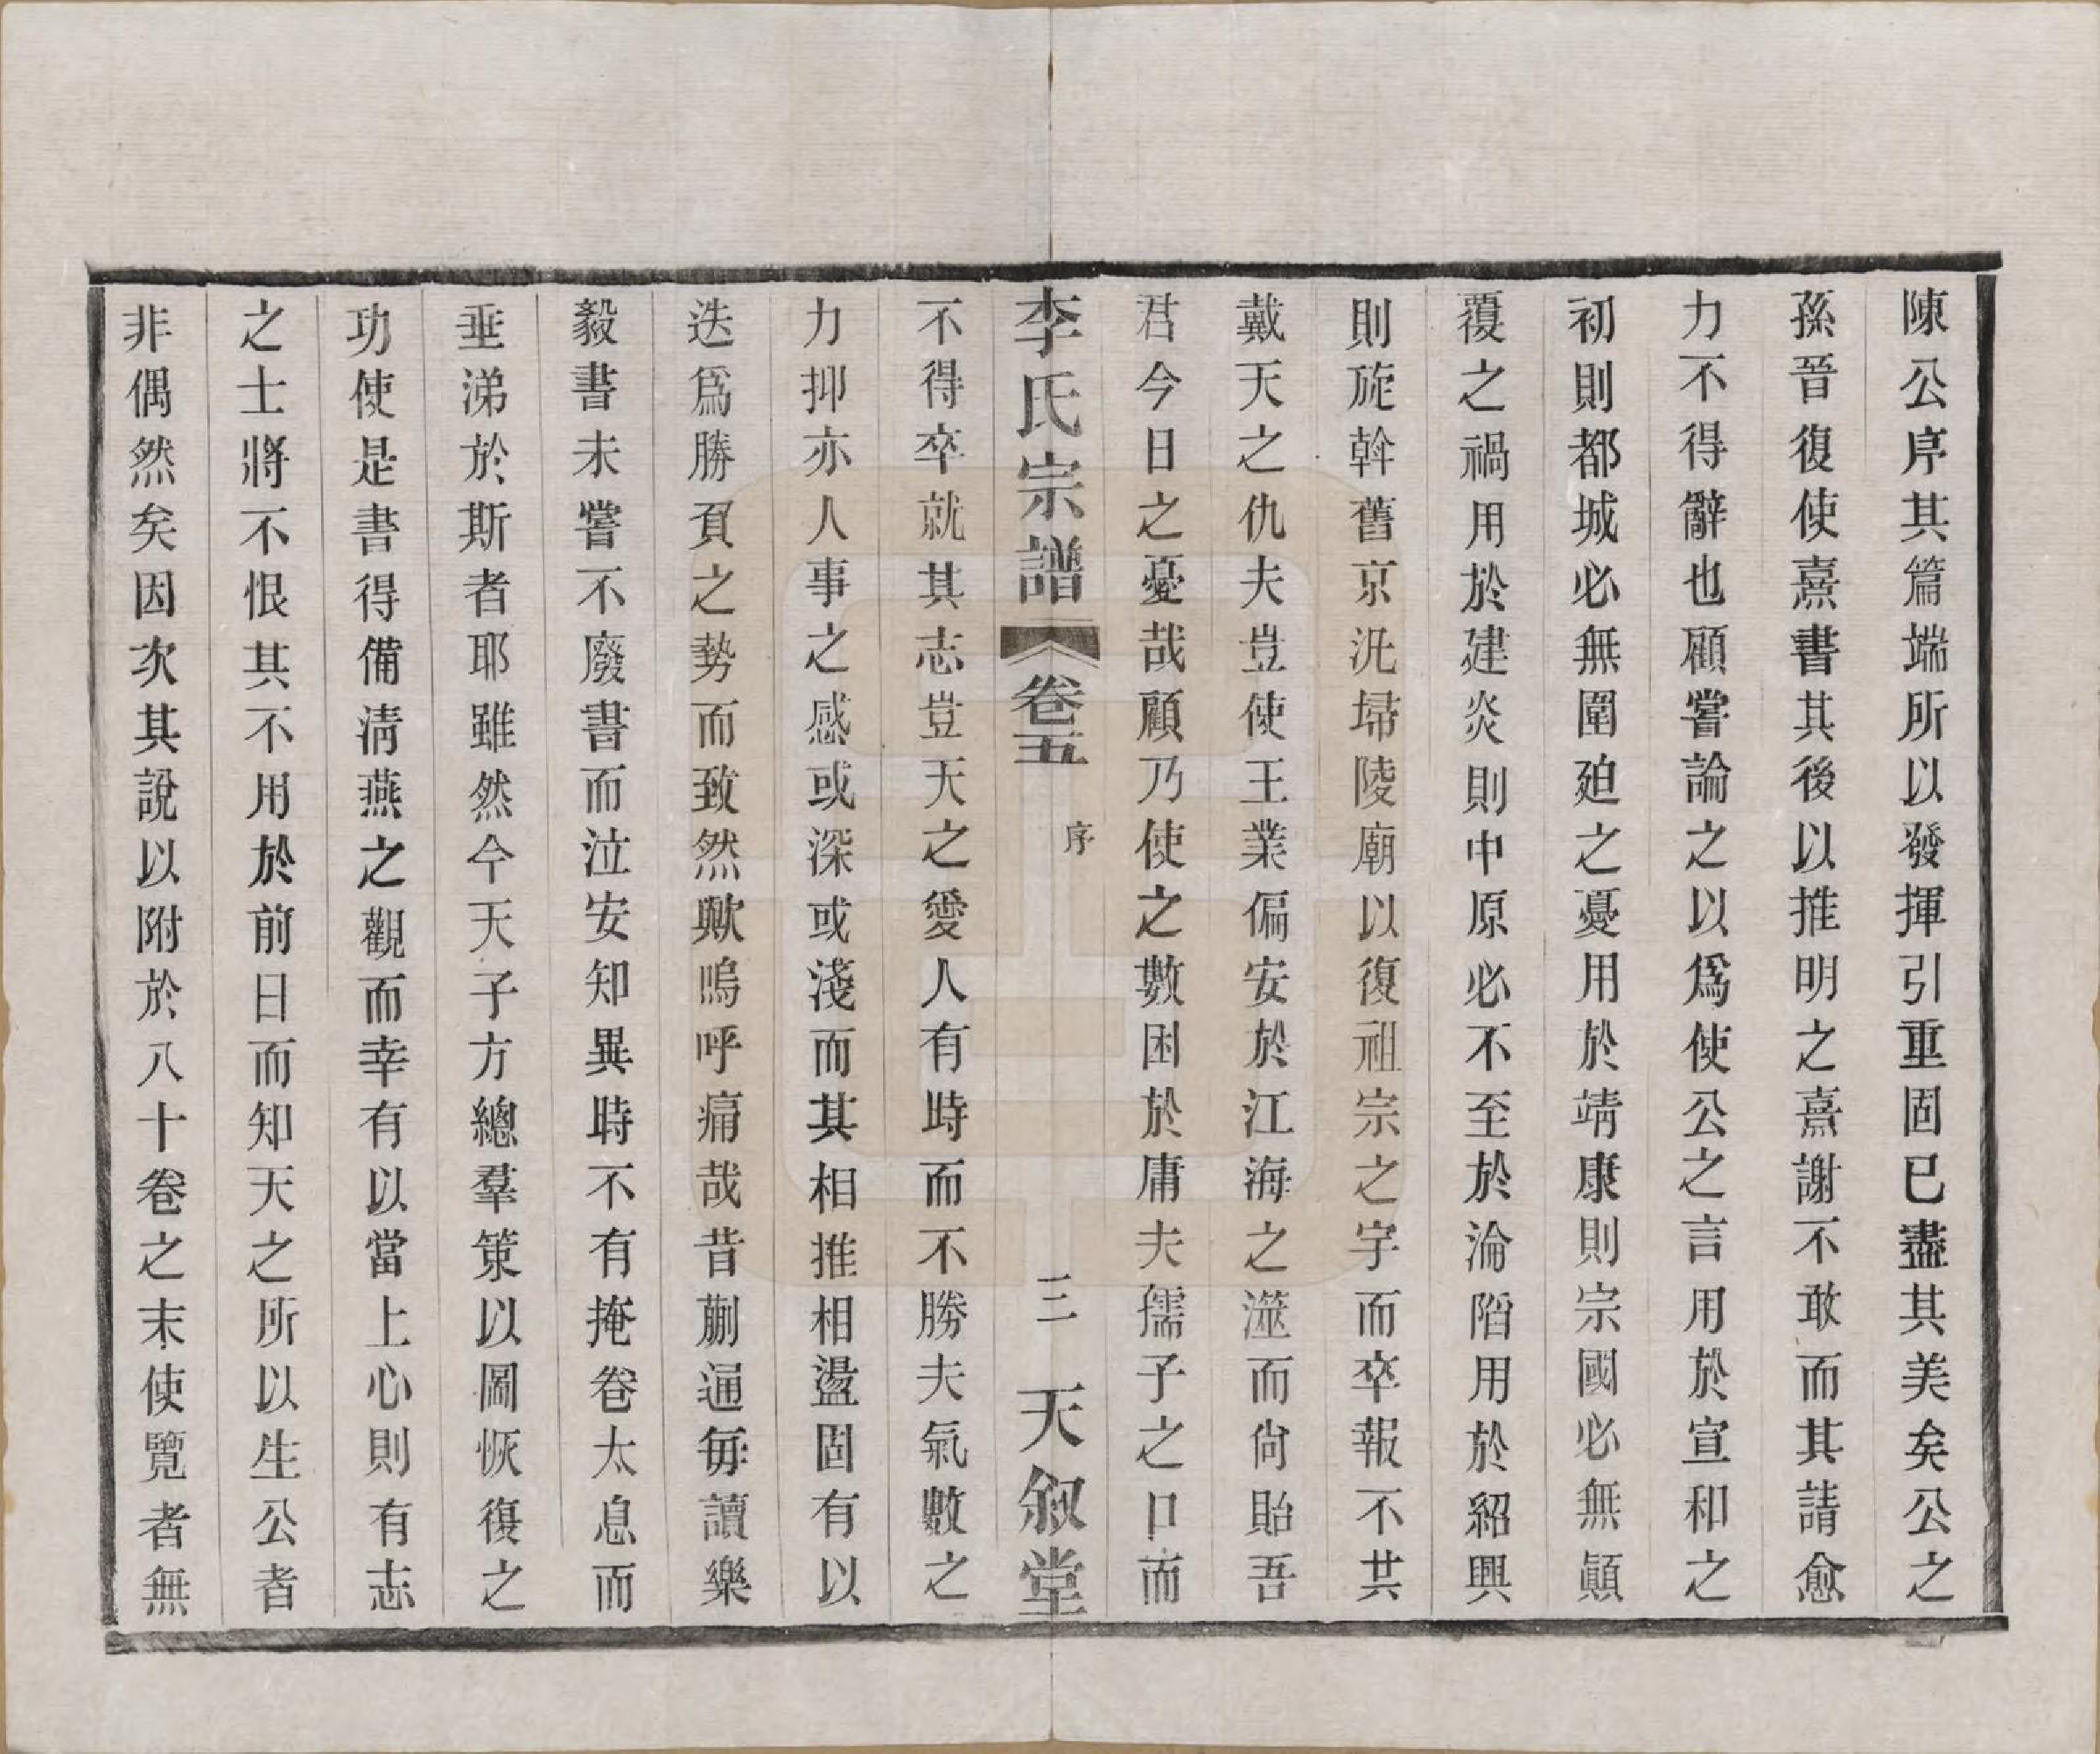 陳公序其篇端所以發揮引重固已盡其美矣公之
孫晉復使熹書其後以推明之熹謝不敢而其請愈
力不得辭也顧嘗論之以爲使公之言用於宣和之
初則都城必無圍廹之憂用於靖康則宗國必無顚
覆之禍用於建炎則中原必不至於淪陷用於紹興
則旋斡舊京汛埽陵廟以復祖宗之宇而卒報不共
戴天之仇夫豈使王業偏安於江海之澨而尙貽吾
君今日之憂哉顧乃使之數困於庸夫孺子之口而
李氏宗譜
卷五
序
三
天叙堂
不得卒就其志豈天之愛人有時而不勝夫氣數之
力抑亦人事之感或深或淺而其相推相盪固有以
迭爲勝負之勢而致然歟嗚呼痛哉昔蒯通每讀樂
毅書未嘗不廢書而泣安知異時不有掩卷太息而
垂涕於斯者耶雖然今天子方總羣策以圖恢復之
功使是書得備淸燕之觀而幸有以當上心則有志
之士將不恨其不用於前日而知天之所以生公者
非偶然矣因次其說以附於八十卷之末使覽者無